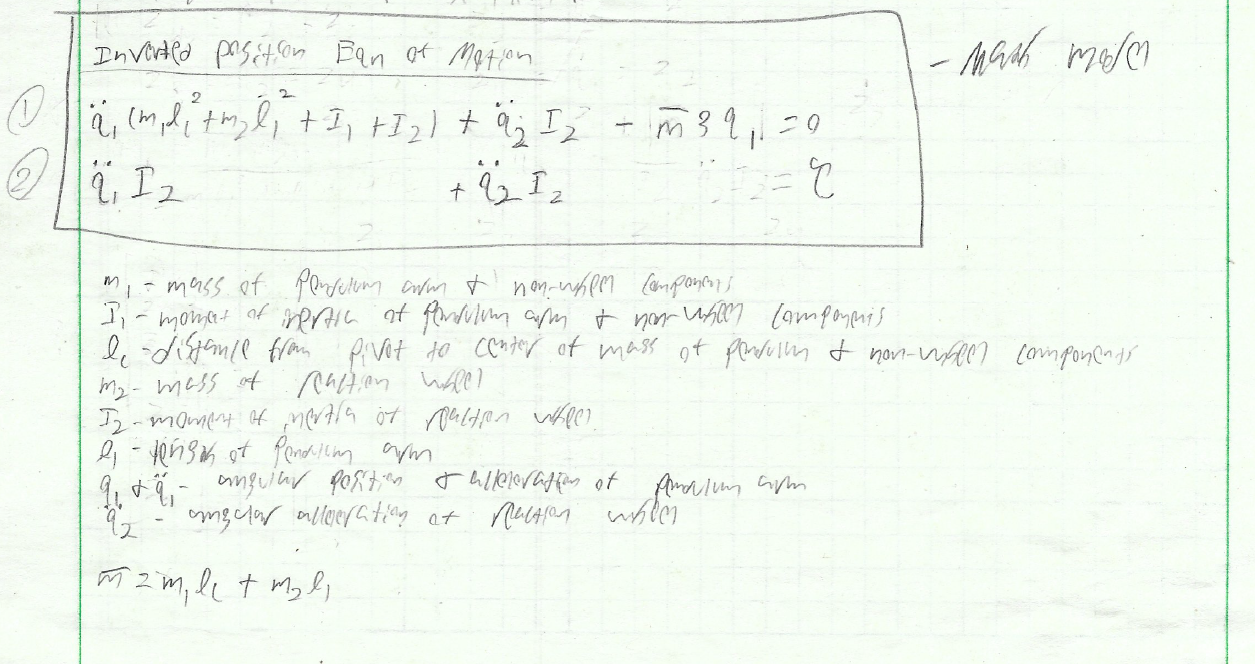 Inverted position Eqn of Motion
- Math model
① q̈₁(m₁l_c² + m₂l₁² + I₁ + I₂) + q̈₂ I₂ - m̅ g q₁ = 0
② q̈₁ I₂ + q̈₂ I₂ = τ
m₁ - mass of pendulum arm & non-wheel components
I₁ - moment of inertia of pendulum arm & non-wheel components
l_c - distance from pivot to center of mass of pendulum & non-wheel components
m₂ - mass of reaction wheel
I₂ - moment of inertia of reaction wheel
l₁ - length of pendulum arm
q₁ & q̈₁ - angular position & acceleration of pendulum arm
q̈₂ - angular acceleration of reaction wheel
m̅ = m₁l_c + m₂l₁